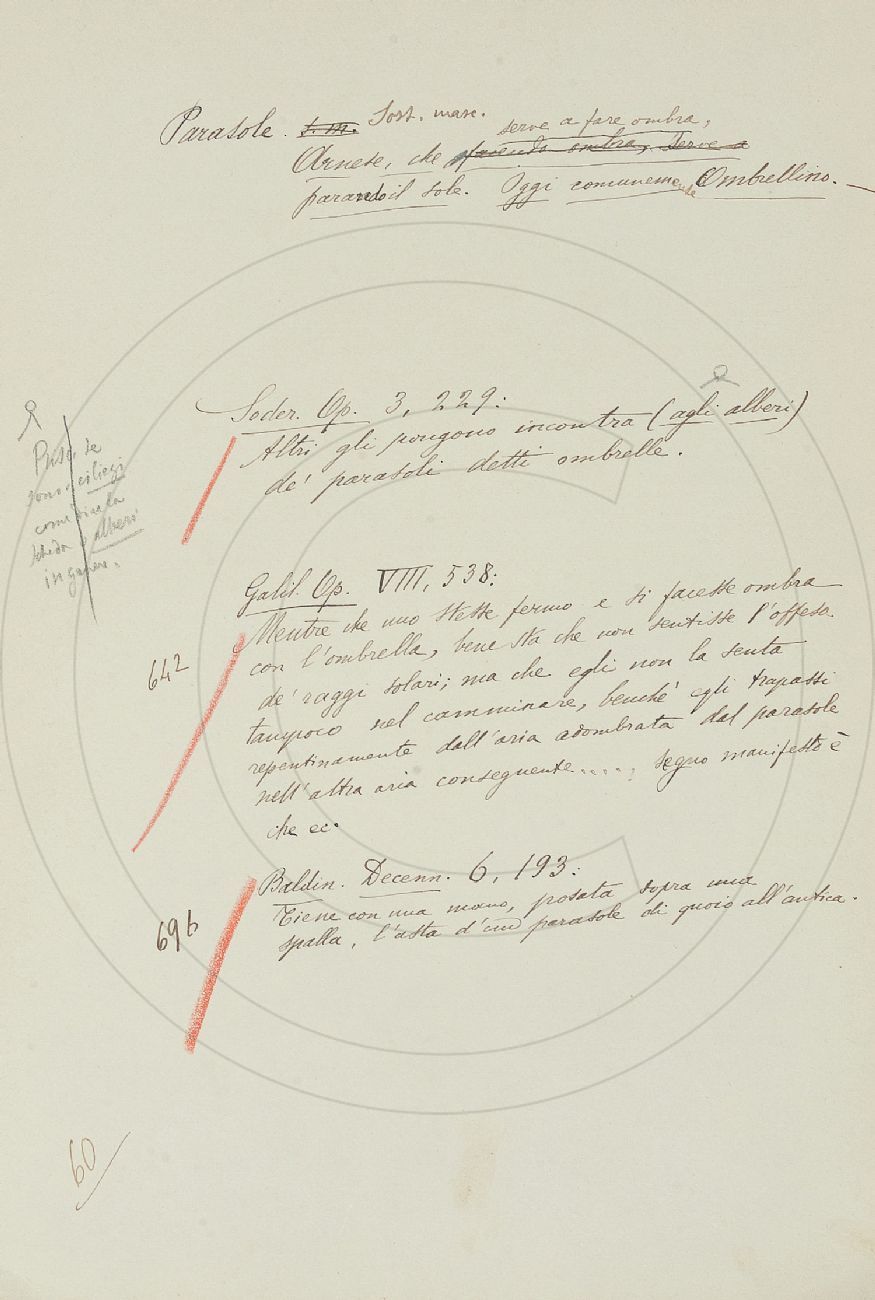 Parasole. s. m. Sost. masc.
serve a fare ombra,
Arnese, che facendo ombra, serve a
parando il sole. Oggi comunemente Ombrellino. —
Soder. Op. 3, 229:
Altri gli pongono incontra (agli alberi)
de' parasoli detti ombrelle.
se
sono ciliegi
come dice la
scheda o alberi
in genere.
Galil. Op. VIII, 538:
Mentre che uno stesse fermo e si facesse ombra
642
con l'ombrella, bene sta che non sentisse l'offesa
de' raggi solari; ma che egli non la senta
tampoco nel camminare, benchè egli trapassi
repentinamente dall'aria adombrata dal parasole
nell'altra aria conseguente....., segno manifesto è
che ec.
Baldin. Decenn. 6, 193:
696
Tiene con una mano, posata sopra una
spalla, l'asta d'un parasole di quoio all'antica.
60